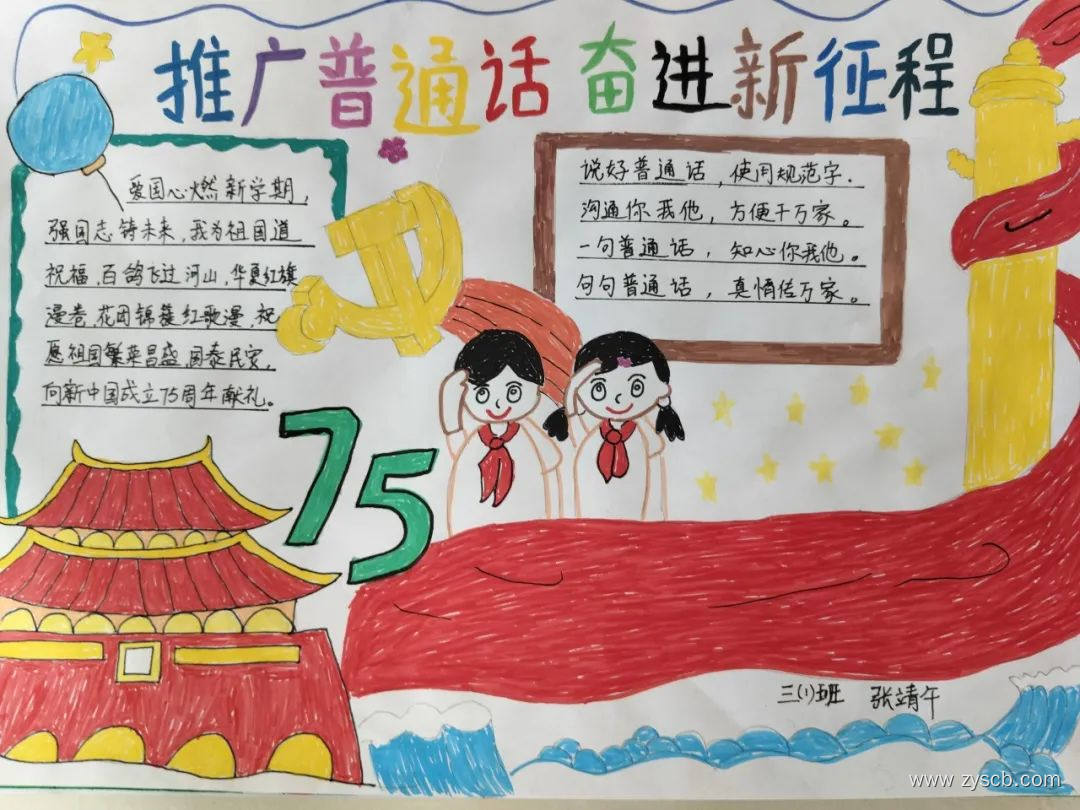 推广普通话 奋进新征程
爱国心燃新学期，
强国志铸未来，我为祖国道
祝福，百鸽飞过河山，华夏红旗
漫卷，花团锦簇红歌漫，祝
愿祖国繁荣昌盛，国泰民安，
向新中国成立75周年献礼。
说好普通话，使用规范字．
沟通你我他，方便千万家。
一句普通话，知心你我他。
句句普通话，真情传万家。
75
三(1)班 张靖午
www.zyscb.com